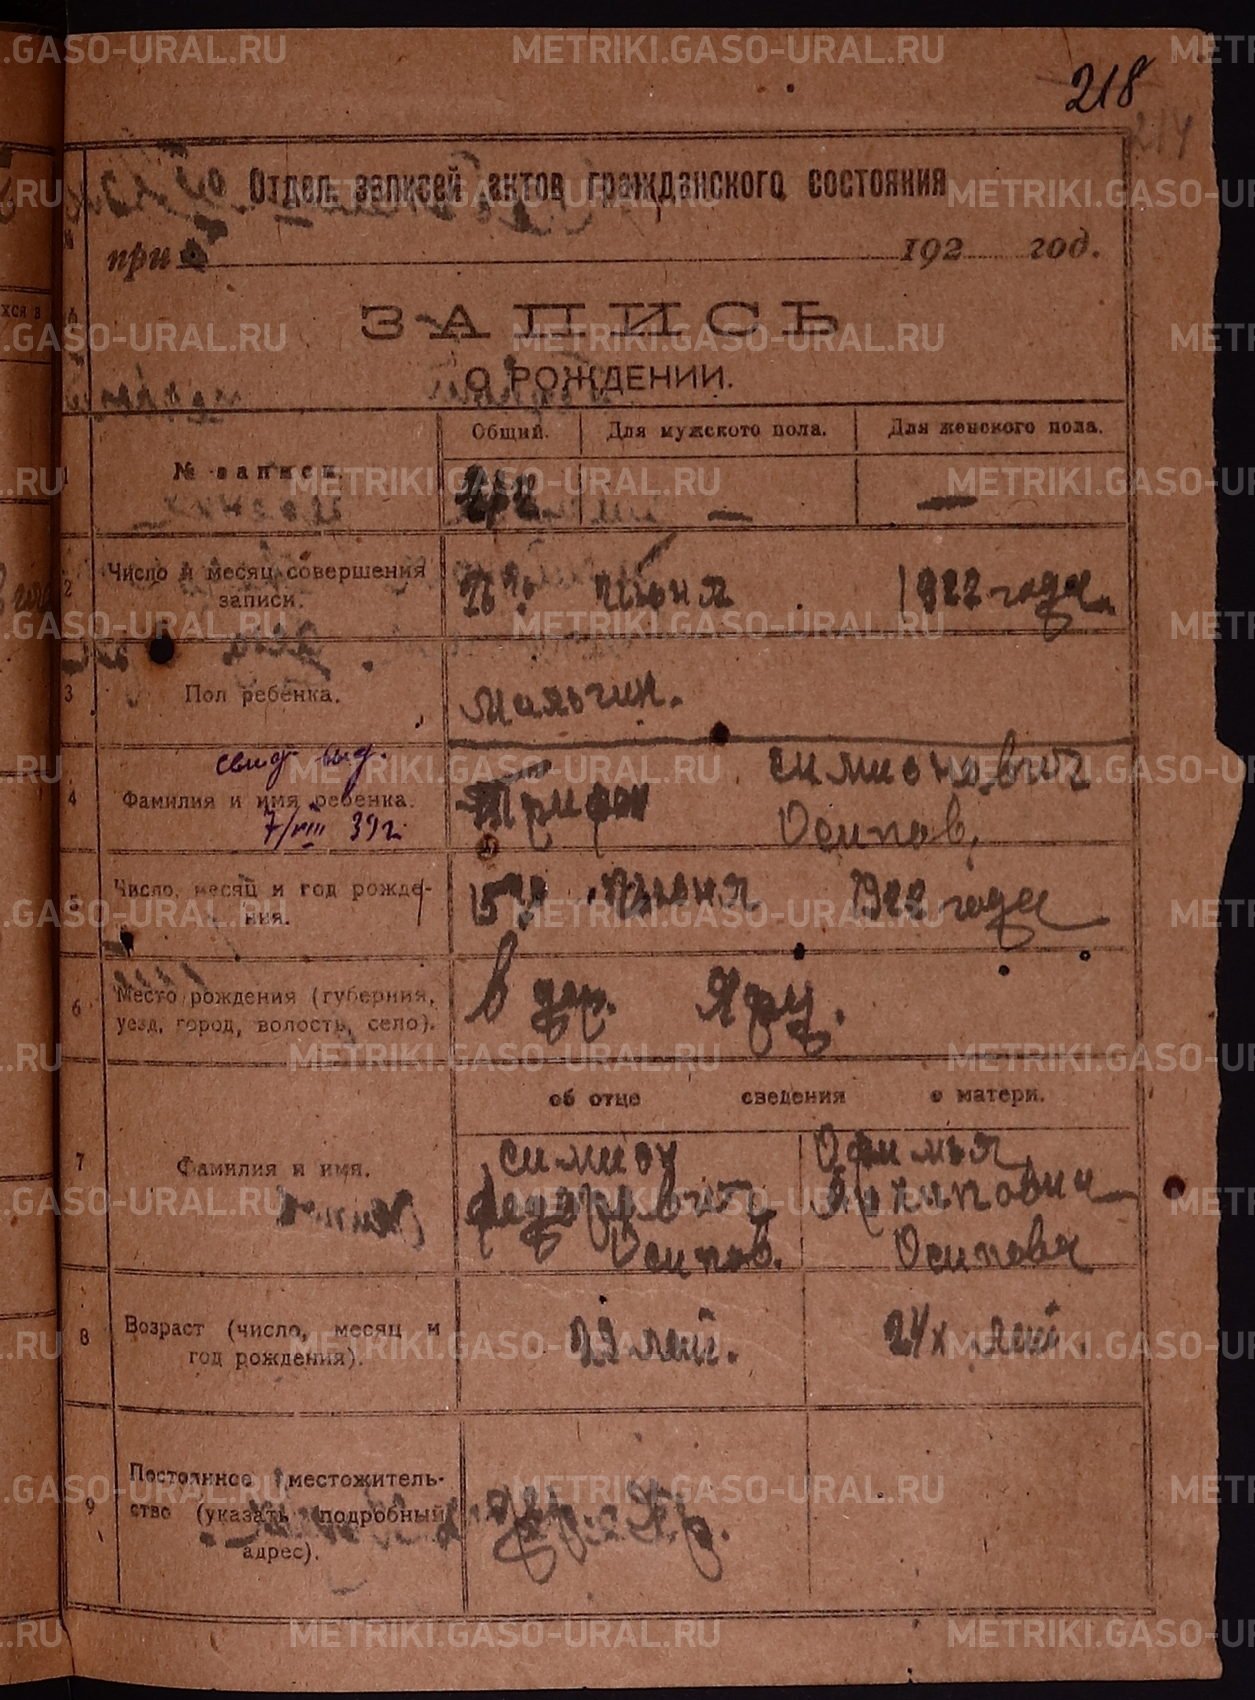 218
214
Отдел записей актов гражданского состояния
при 192 год.
ЗАПИСЬ
О РОЖДЕНИИ.
Общий. Для мужского пола. Для женского пола.
1 № записи. — —
2 Число и месяц совершения записи. 26го июня 1922 года
3 Пол ребенка. Мальчик.
свид. выд.
4 Фамилия и имя ребенка. Трифон симионович
7/VIII 39г. Осипов.
5 Число, месяц и год рождения. 15го июня 1922 года
6 Место рождения (губерния, в дер. Яру.
уезд, город, волость, село).
об отце сведения о матери.
7 Фамилия и имя. симион Офимья
Осипов. Осипова
8 Возраст (число, месяц и 29 лет. 24х лет.
год рождения).
9 Постоянное местожительство (указать подробный адрес). дер. Яр.
METRIKI.GASO-URAL.RU